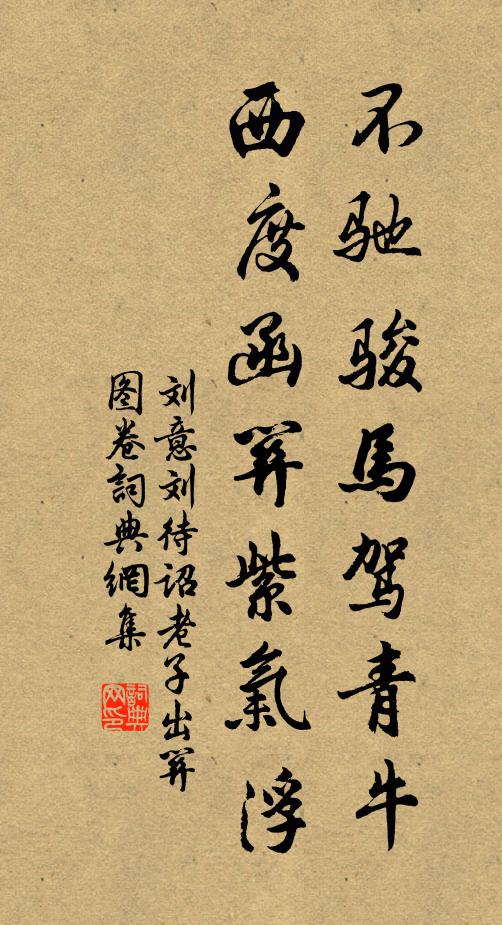 不驰骏馬驾青牛
西度函関紫氣浮
刘意刘待诏老子出関
图卷詞典網集
詞典网印